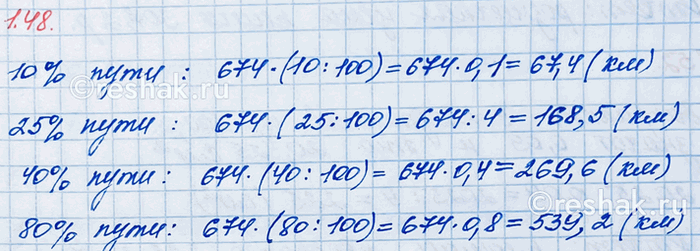 1.48.
10% пути : 674·(10:100)=674·0,1=67,4(км)
25% пути : 674·(25:100)=674:4=168,5(км)
40% пути: 674·(40:100)=674·0,4=269,6(км)
80% пути: 674·(80:100)=674·0,8=539,2(км)
©reshak.ru
©reshak.ru